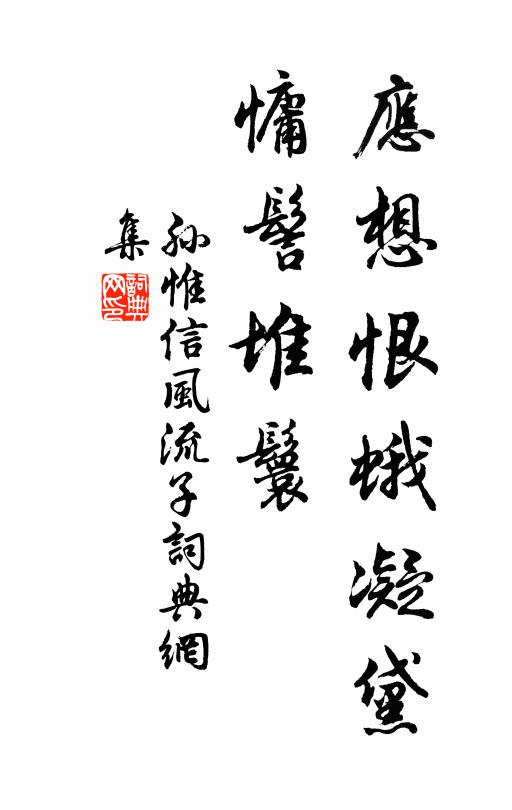 應想恨蛾凝黛
慵髻堆鬟
孙惟信風流子詞典網
集
詞典
网印